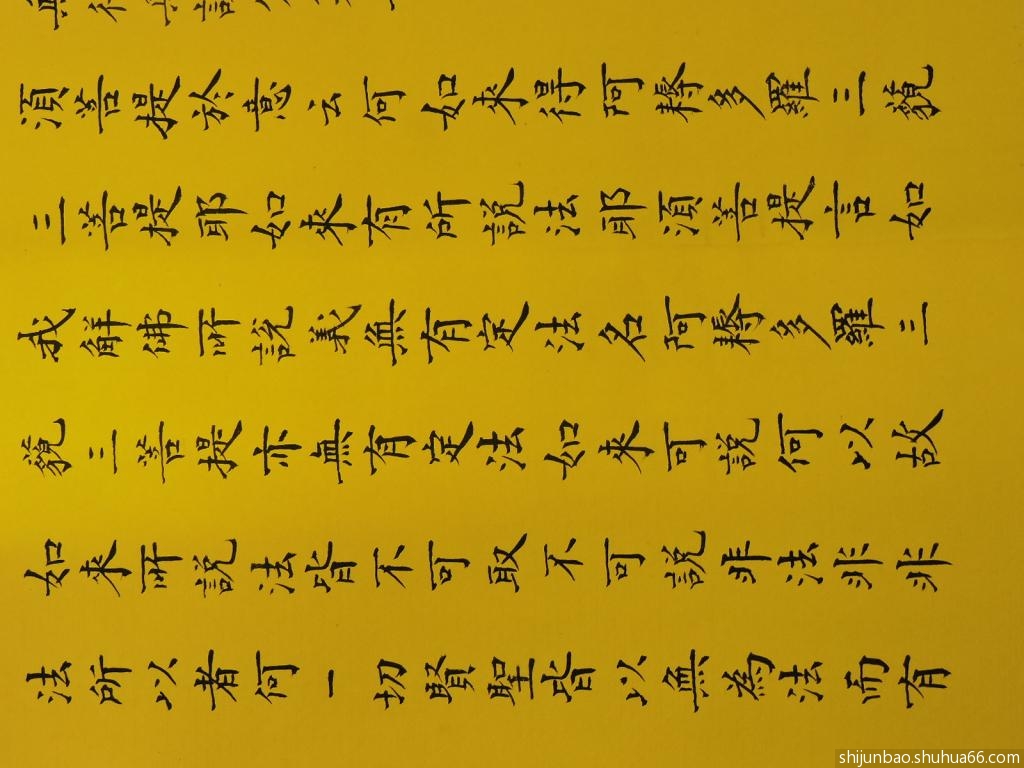 須菩提於意云何如來得阿耨多羅三藐
三菩提耶如來有所說法耶須菩提言如
我解佛所說義無有定法名阿耨多羅三
藐三菩提亦無有定法如來可說何以故
如來所說法皆不可取不可說非法非非
法所以者何一切賢聖皆以無為法而有
shijunbao.shuhua66.com